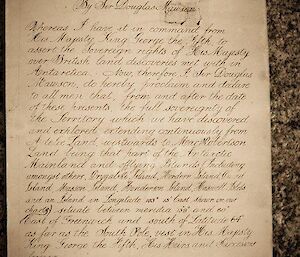 By Sir Douglas Mawson.
Whereas I have it in command from
His Majesty King George the Fifth to
assert the Sovereign rights of His Majesty
over British land discoveries met with in
Antarctica. Now, therefore, I Sir Douglas
Mawson, do hereby proclaim and declare
to all men that, from and after the date
of these presents, the full sovereignty of
the Territory which we have discovered
and explored extending continuously from
Adelie Land, westwards to MacRobertson
Land being that part of the Antarctic
Mainland and offlying Islands including
amongst others, Drygalski Island, Hordern Island,
Island, Masson Island, Henderson Island, Maxwell Islds
and an Island in Longitude East shown on our
chart situate between meridia and
East of Greenwich and south of Latitude
as far as the South Pole, vest in His Majesty
King George the Fifth, His Heirs and Successors